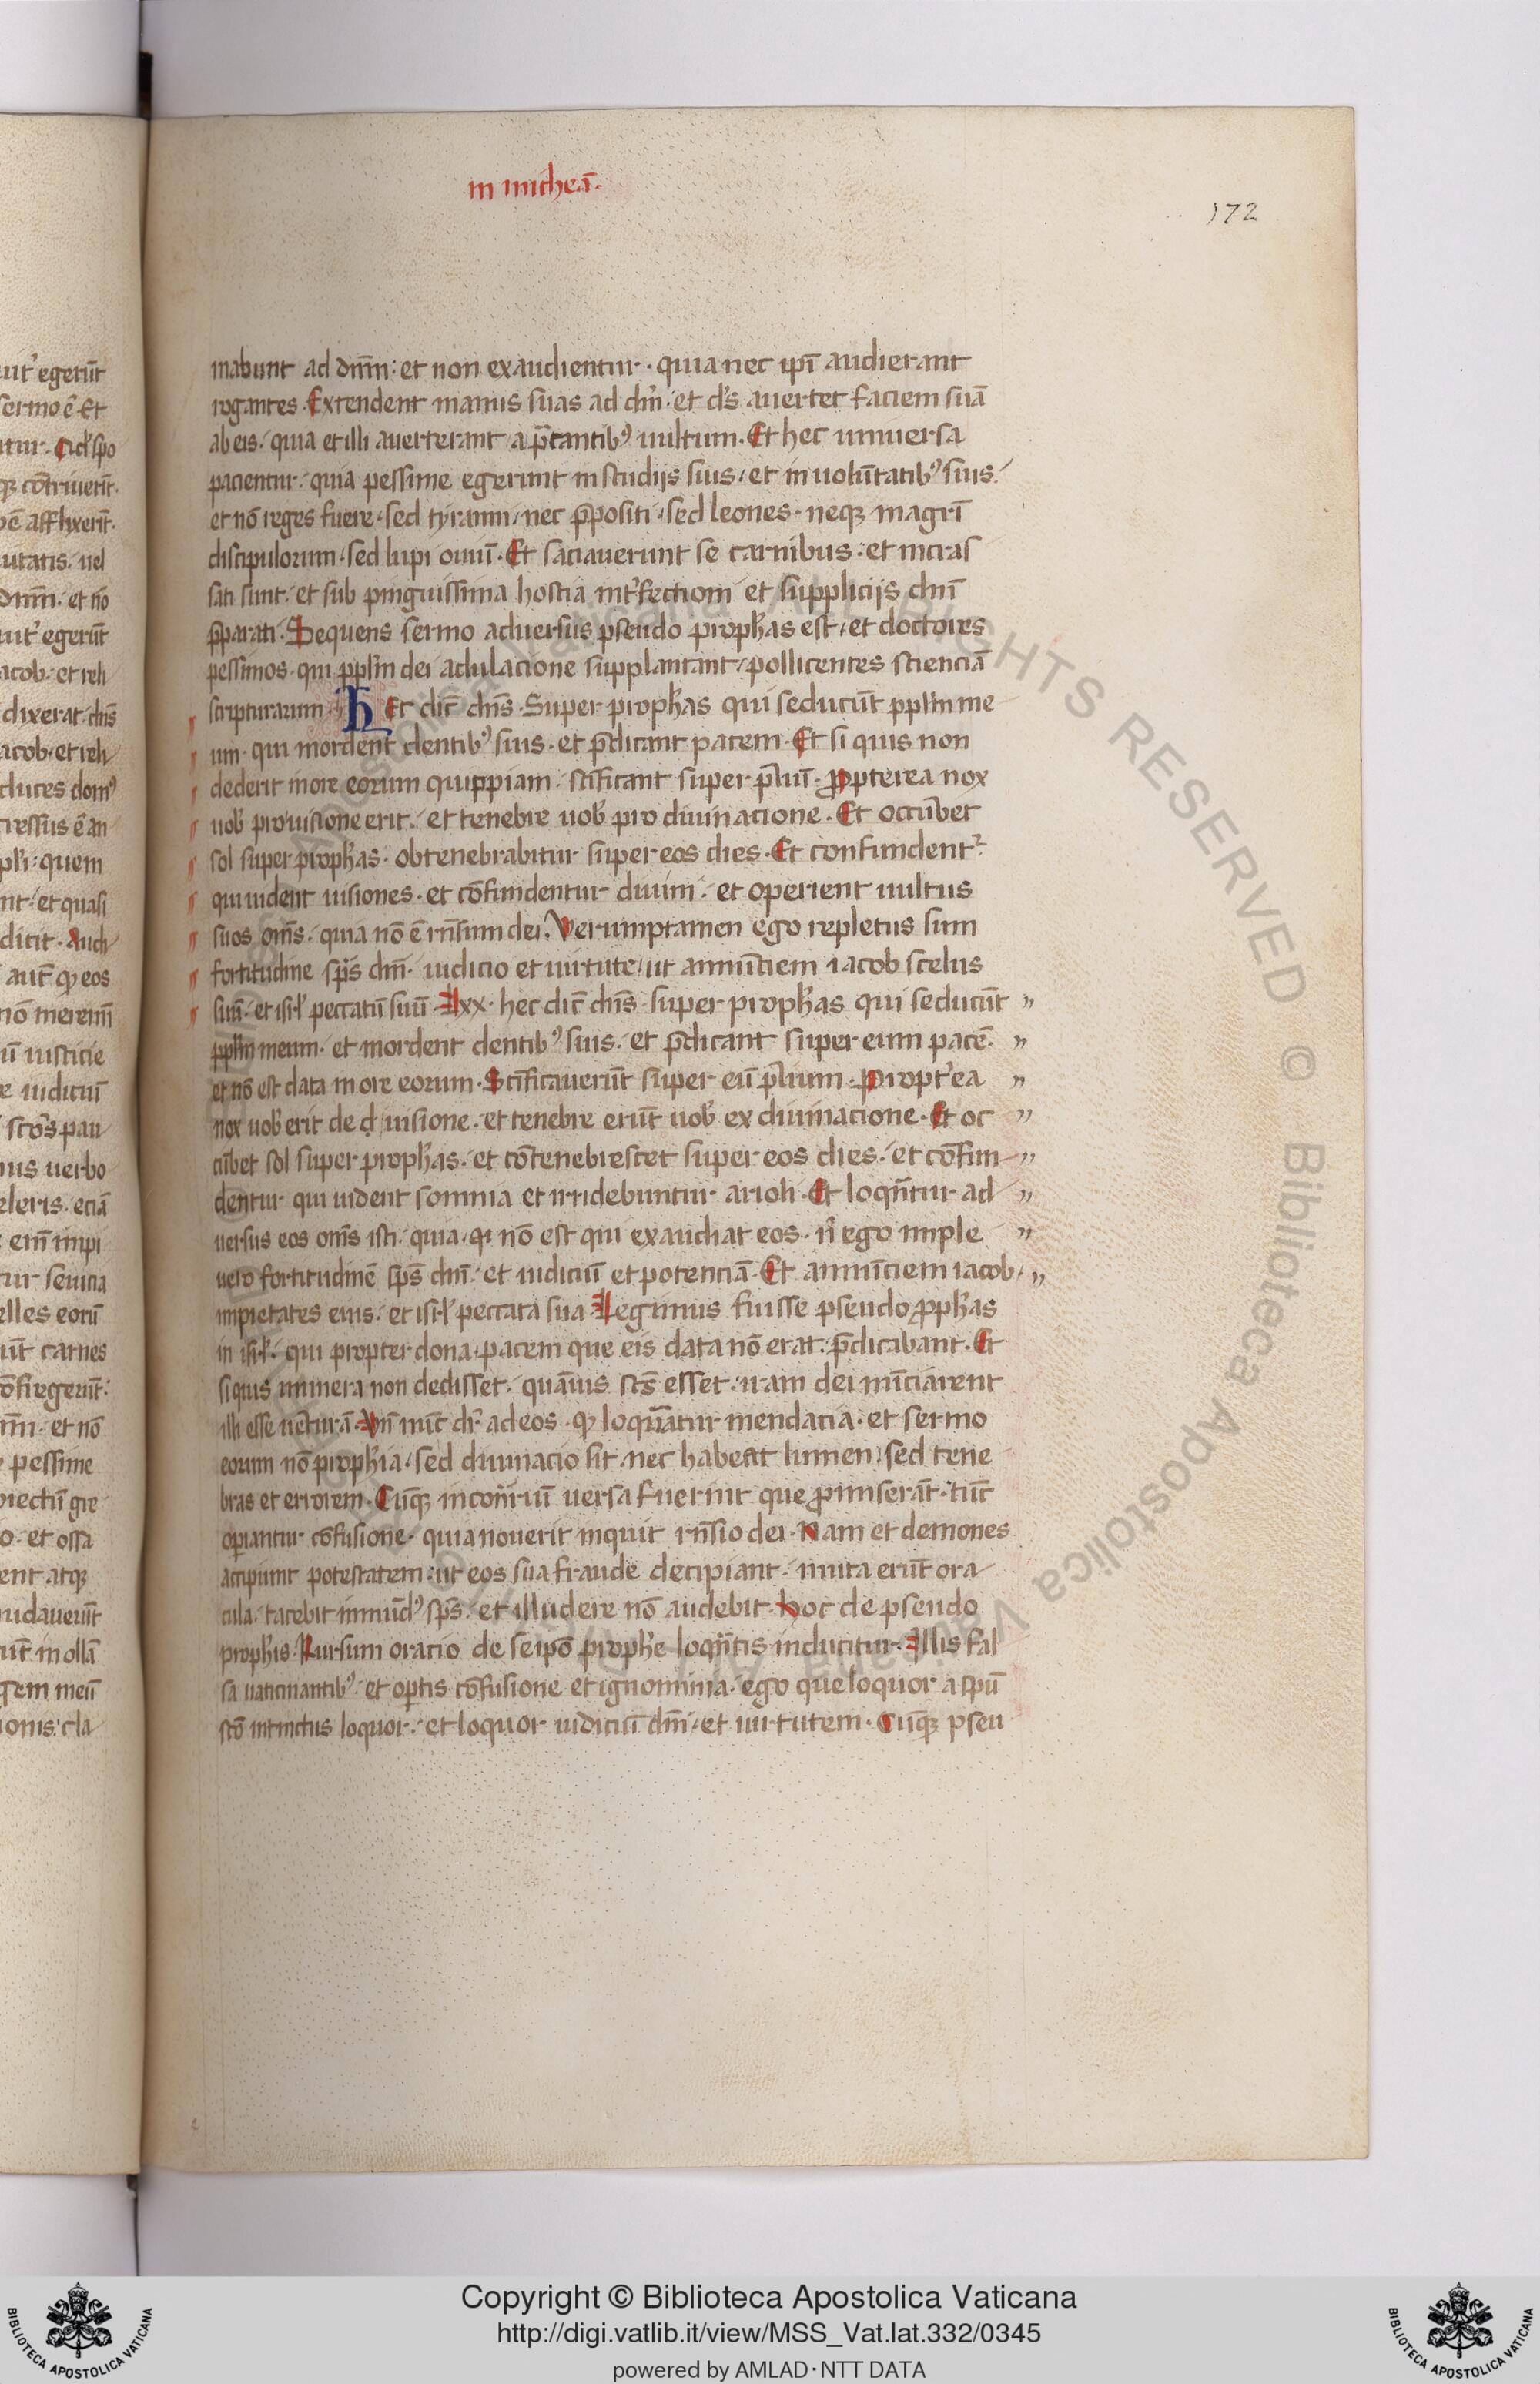 in micheā.
172
mabunt ad dnm̄: et non exaudientur. quia nec ip̄i audierant
rogantes. Extendent manus suas ad dn̄m. et d's auertet faciem suā
ab eis. quia et illi auerterant a p̄cantib' uultum. Et hec uniuersa
pacientur. quia pessime egerunt in studijs suis, et in uolūtatib' suis.
et nō reges fuere, sed tyranni, nec p̄positi, sed leones. neq; magr̄i
discipulorum, sed lupi ouiū. Et saciauerunt se carnibus. et incras
sati sunt. et sub pinguissima hostia int'fectioni et supplicijs dn̄i
p̄parati. Sequens sermo aduersus pseudo proph'as est, et doctores
pessimos. qui pp̄lm dei adulacione supplantant, pollicentes scienciā
scripturarum. hEc dic̄ dn̄s. Super proph'as qui seducūt pp̄lm me
um. qui mordent dentib' suis. et p̄dicant pacem. Et si quis non
dederit in ore eorum quippiam. sc̄ificant super p̄liū. Propterea nox
uob' pro uisione erit. et tenebre uob' pro diuinacione. Et occūbet
sol super proph'as. obtenebrabitur super eos dies. Et confundent'
qui uident uisiones. et cōfundentur diuini. et operient uultus
suos om̄s. quia nō ē rn̄sum dei. Verumptamen ego repletus sum
fortitudine sp̄s dn̄i. iudicio et uirtute, ut annūciem iacob scelus
suū. et isr̄l peccatū suū. Lxx. hec dic̄ dn̄s super proph'as qui seducūt "
pp̄lm meum. et mordent dentib' suis. et p̄dicant super eum pacē. "
et nō est data in ore eorum. Sc̄ificauerūt super eū p̄lium. Propt'ea "
nox uob' erit de d uisione. et tenebre erūt uob' ex diuinacione. Et oc "
cūbet sol super proph'as. et cōtenebrescet super eos dies. et cōfun "
dentur qui uident somnia et irridebuntur arioli. Et loqn̄tur ad "
uersus eos om̄s isti. quia, qi nō est qui exaudiat eos. n̄ ego imple "
uero fortitudinē sp̄s dn̄i. et iudiciū et potenciā. Et annūciem iacob "
impietates eius. et isr̄l peccata sua. Legimus fuisse pseudo pp̄h'as
in isr̄l. qui propter dona, pacem que eis data nō erat. p̄dicabant. Et
si quis munera non dedisset. quāuis sc̄s esset. iram dei nūciarent
illi esse uēturā. Vn̄ nūc dr̄ ad eos. qp loquātur mendacia. et sermo
eorum nō proph'ia, sed diuinacio sit. nec habeat lumen, sed tene
bras et errorem. Cūq; in cont̄riū uersa fuerint que pmiserāt. tūc
opiantur cōfusione. quia nouerit inquit rn̄sio dei. Nam et demones
accipiunt potestatem. ut eos sua fraude decipiant. muta erūt ora
cula. tacebit inmūd' sp̄s. et illudere nō audebit. hoc de pseudo
proph'is. Rursum oracio de seipō proph'e loqn̄tis inducitur. Illis fal
sa uaticinantib'. et op̄tis cōfusione et ignominia. ego que loquor a sp̄u
sc̄o intinctus loquor. et loquor iudiciū dn̄i. et uirtutem. Cūq; pseu
Copyright © Biblioteca Apostolica Vaticana
http://digi.vatlib.it/view/MSS_Vat.lat.332/0345
powered by AMLAD·NTT DATA